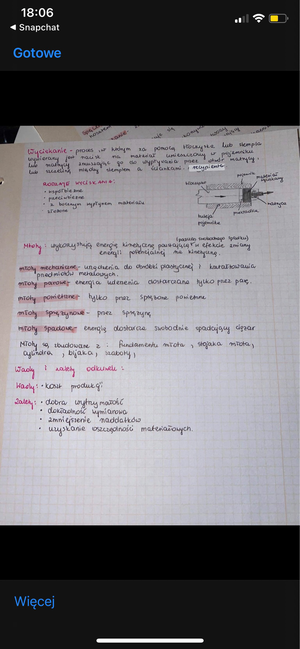 18:06
Snapchat
Gotowe
Wyciskanie - proces, w którym za pomocą tłoczyska lub stempla
wywierany jest nacisk na materiał umieszczony w pojemniku
lub matrycy zmuszając go do wypływania przez otwór matrycy,
lub szczelinę między stemplem a ściankami.
RODZAJE WYCISKANIA
• współbieżne
• przeciwbieżne
• z bocznym wypływem materiału
• złożone
tłoczysko
pojemnik
matryca
przetłoczka
Młoty: wykorzystują energię kinetyczną powstającą w efekcie zmiany
energii potencjalnej na kinetyczną.
młoty mechaniczne - urządzenia do obróbki plastycznej i kształtowania
przedmiotów metalowych.
młoty parowe - energia uderzenia dostarczana tylko przez parę,
młoty powietrzne - tylko przez sprężone powietrze
młoty sprężynowe - przez sprężynę
młoty spadowe - energię dostarcza swobodnie spadający ciężar
Młoty są zbudowane z: fundamentu młota, stojaka młota,
cylindra, bijaka, szaboty,
Wady i zalety odkuwek:
Wady: • koszt produkcji
Zalety: • dobra wytrzymałość
• dokładność wymiarowa
• zmniejszenie naddatków
• uzyskanie oszczędności materiałowych.
Więcej